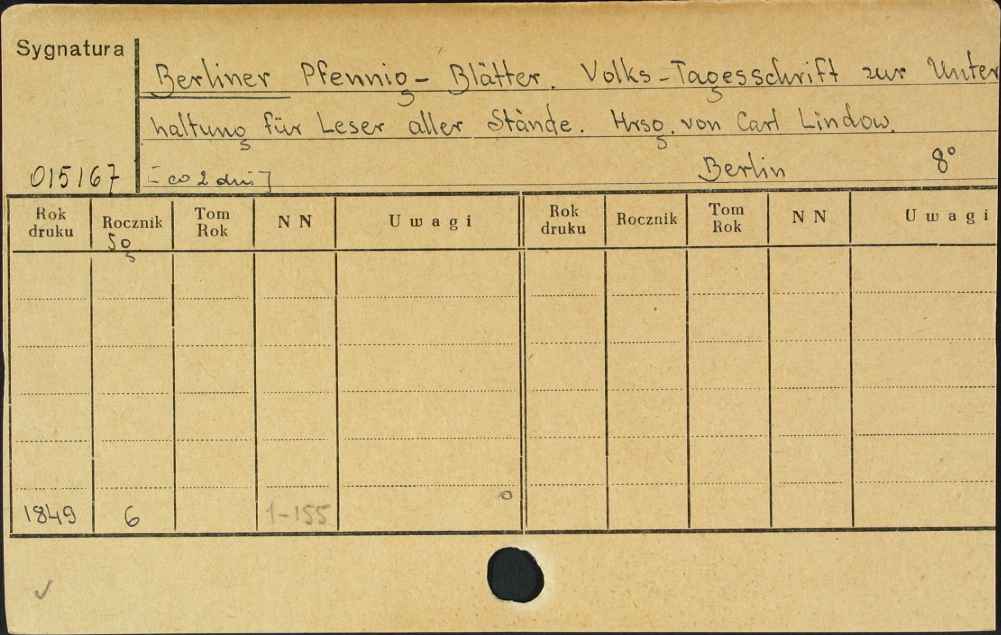 Sygnatura
Berliner Pfennig - Blätter. Volks - Tagesschrift zur Unter
haltung für Leser aller Stände. Hrsg. von Carl Lindow.
015167 [co 2 dni] Berlin 8°
Rok druku Rocznik Tom Rok NN Uwagi Rok druku Rocznik Tom Rok NN Uwagi
Sg
1849 6 1-155